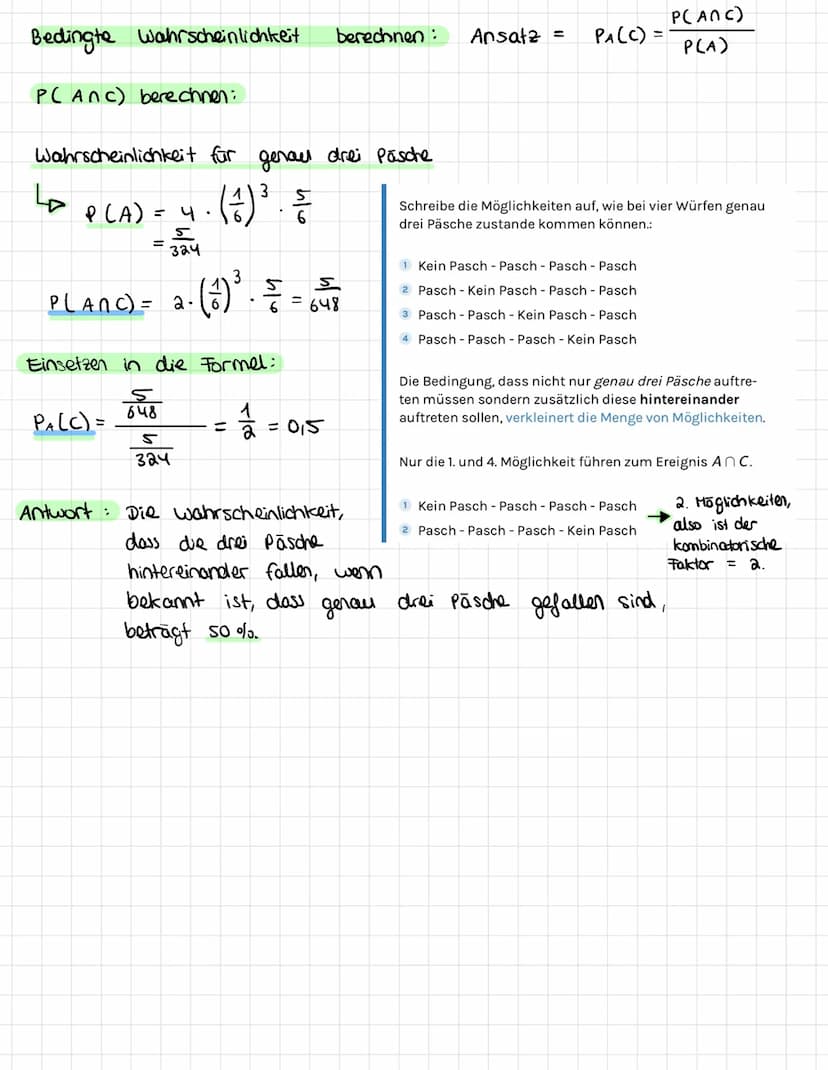 Bedingte Wahrscheinlichkeit berechnen: Ansatz = P_A(C) = P(A∩C) / P(A)
P(A∩C) berechnen:
Wahrscheinlichkeit für genau drei Päsche
↳ P(A) = 4 · (1/6)^3 · 5/6
= 5/324
P(A∩C) = 2 · (1/6)^3 · 5/6 = 5/648
Einsetzen in die Formel:
P_A(C) = (5/648) / (5/324) = 1/2 = 0,5
Schreibe die Möglichkeiten auf, wie bei vier Würfen genau
drei Päsche zustande kommen können.:
1 Kein Pasch - Pasch - Pasch - Pasch
2 Pasch - Kein Pasch - Pasch - Pasch
3 Pasch - Pasch - Kein Pasch - Pasch
4 Pasch - Pasch - Pasch - Kein Pasch
Die Bedingung, dass nicht nur genau drei Päsche auftre-
ten müssen sondern zusätzlich diese hintereinander
auftreten sollen, verkleinert die Menge von Möglichkeiten.
Nur die 1. und 4. Möglichkeit führen zum Ereignis A ∩ C.
1 Kein Pasch - Pasch - Pasch - Pasch
2 Pasch - Pasch - Pasch - Kein Pasch
→ 2. Möglichkeiten,
also ist der
kombinatorische
Faktor = 2.
Antwort: Die Wahrscheinlichkeit,
dass die drei Päsche
hintereinander fallen, wenn
bekannt ist, dass genau drei Päsche gefallen sind,
beträgt 50 %.